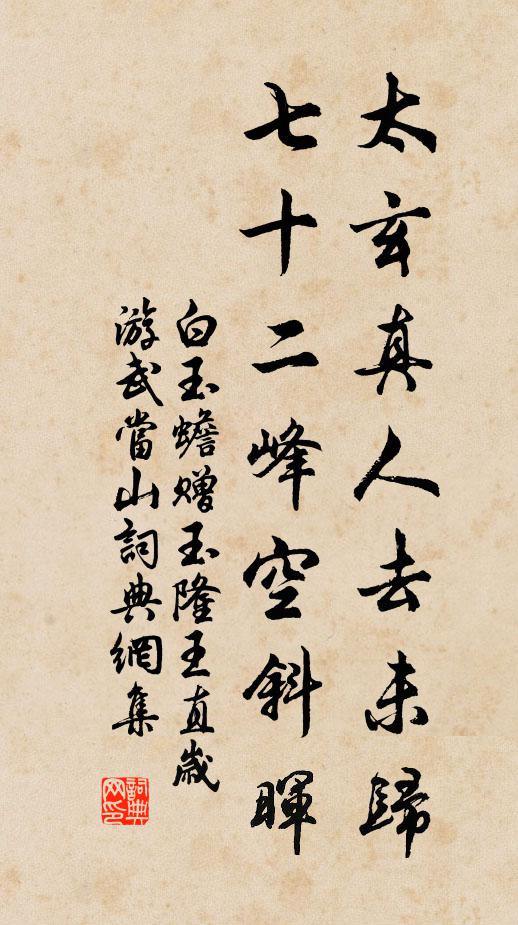 太玄真人去未歸
七十二峰空斜暉
白玉蟾贈玉隆王直歲
游武當山詞典網集
詞典
网印